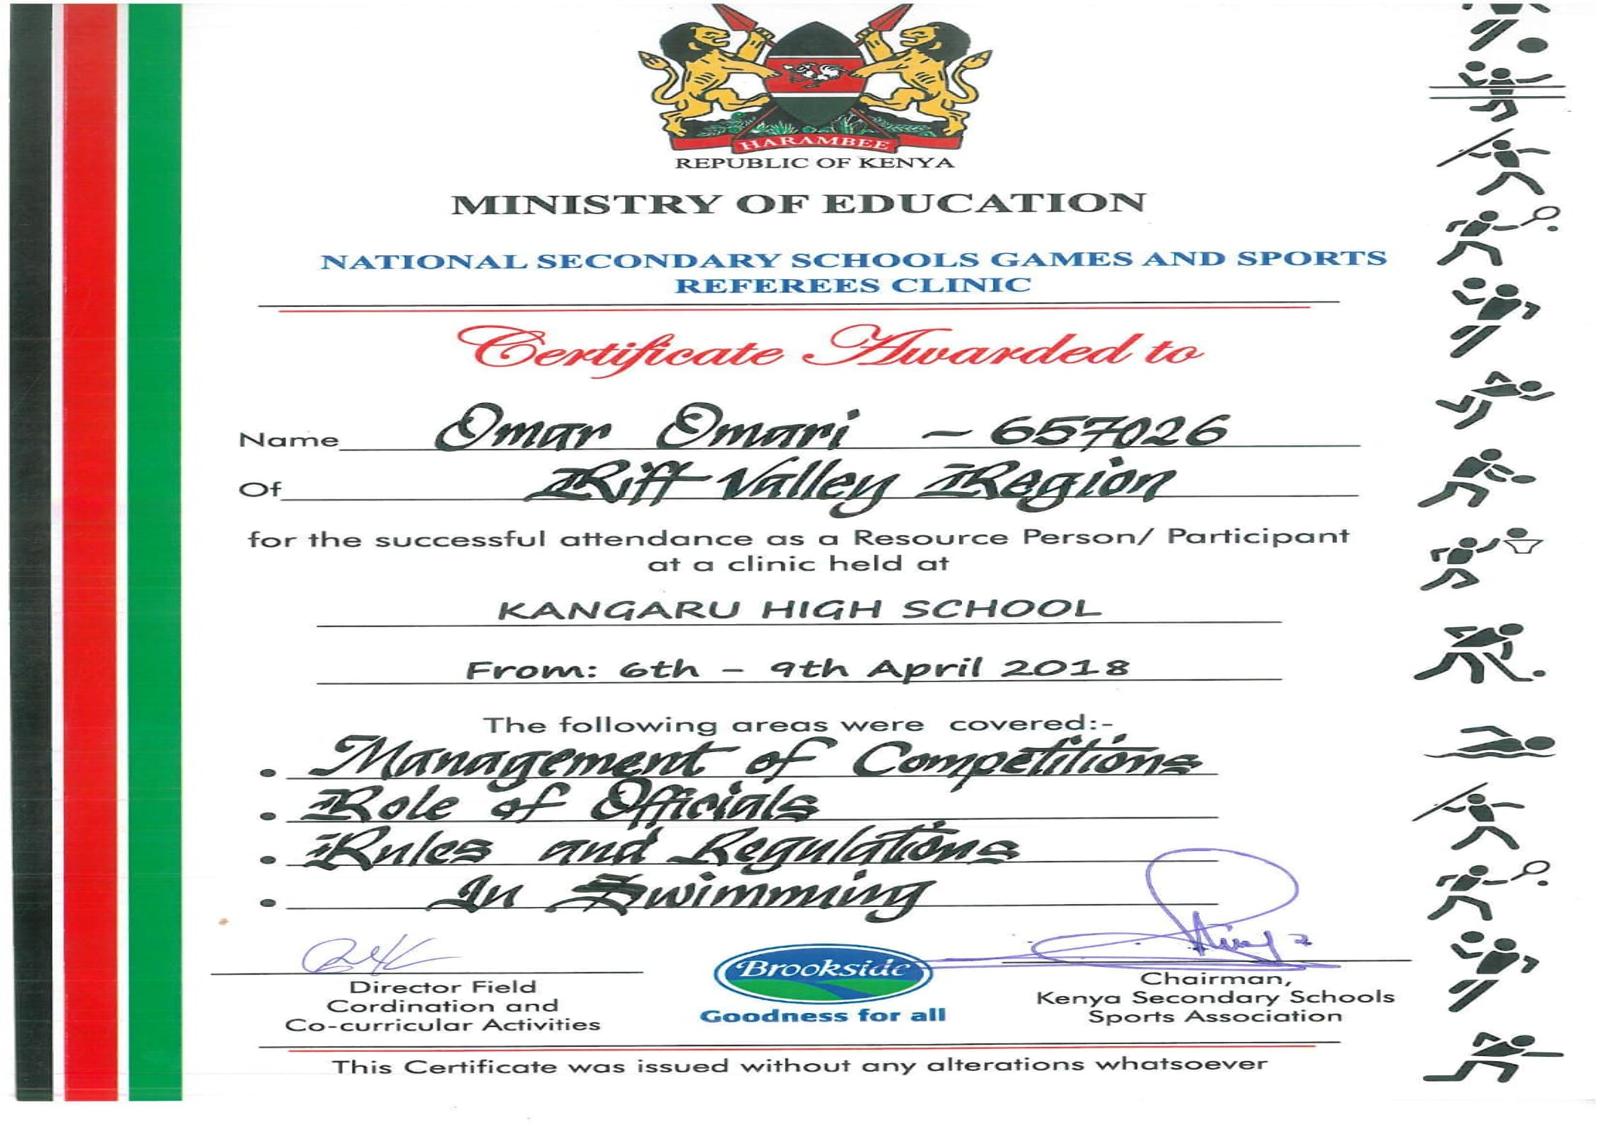 HARAMBEE
REPUBLIC OF KENYA
MINISTRY OF EDUCATION
NATIONAL SECONDARY SCHOOLS GAMES AND SPORTS
REFEREES CLINIC
Certificate Awarded to
Name Omar Omari - 657026
Of Rift Valley Region
for the successful attendance as a Resource Person/ Participant
at a clinic held at
KANGARU HIGH SCHOOL
From: 6th - 9th April 2018
The following areas were covered:-
• Management of Competitions
• Role of Officials
• Rules and Regulations
• In Swimming
Director Field
Cordination and
Co-curricular Activities
Brookside
Goodness for all
Chairman,
Kenya Secondary Schools
Sports Association
This Certificate was issued without any alterations whatsoever